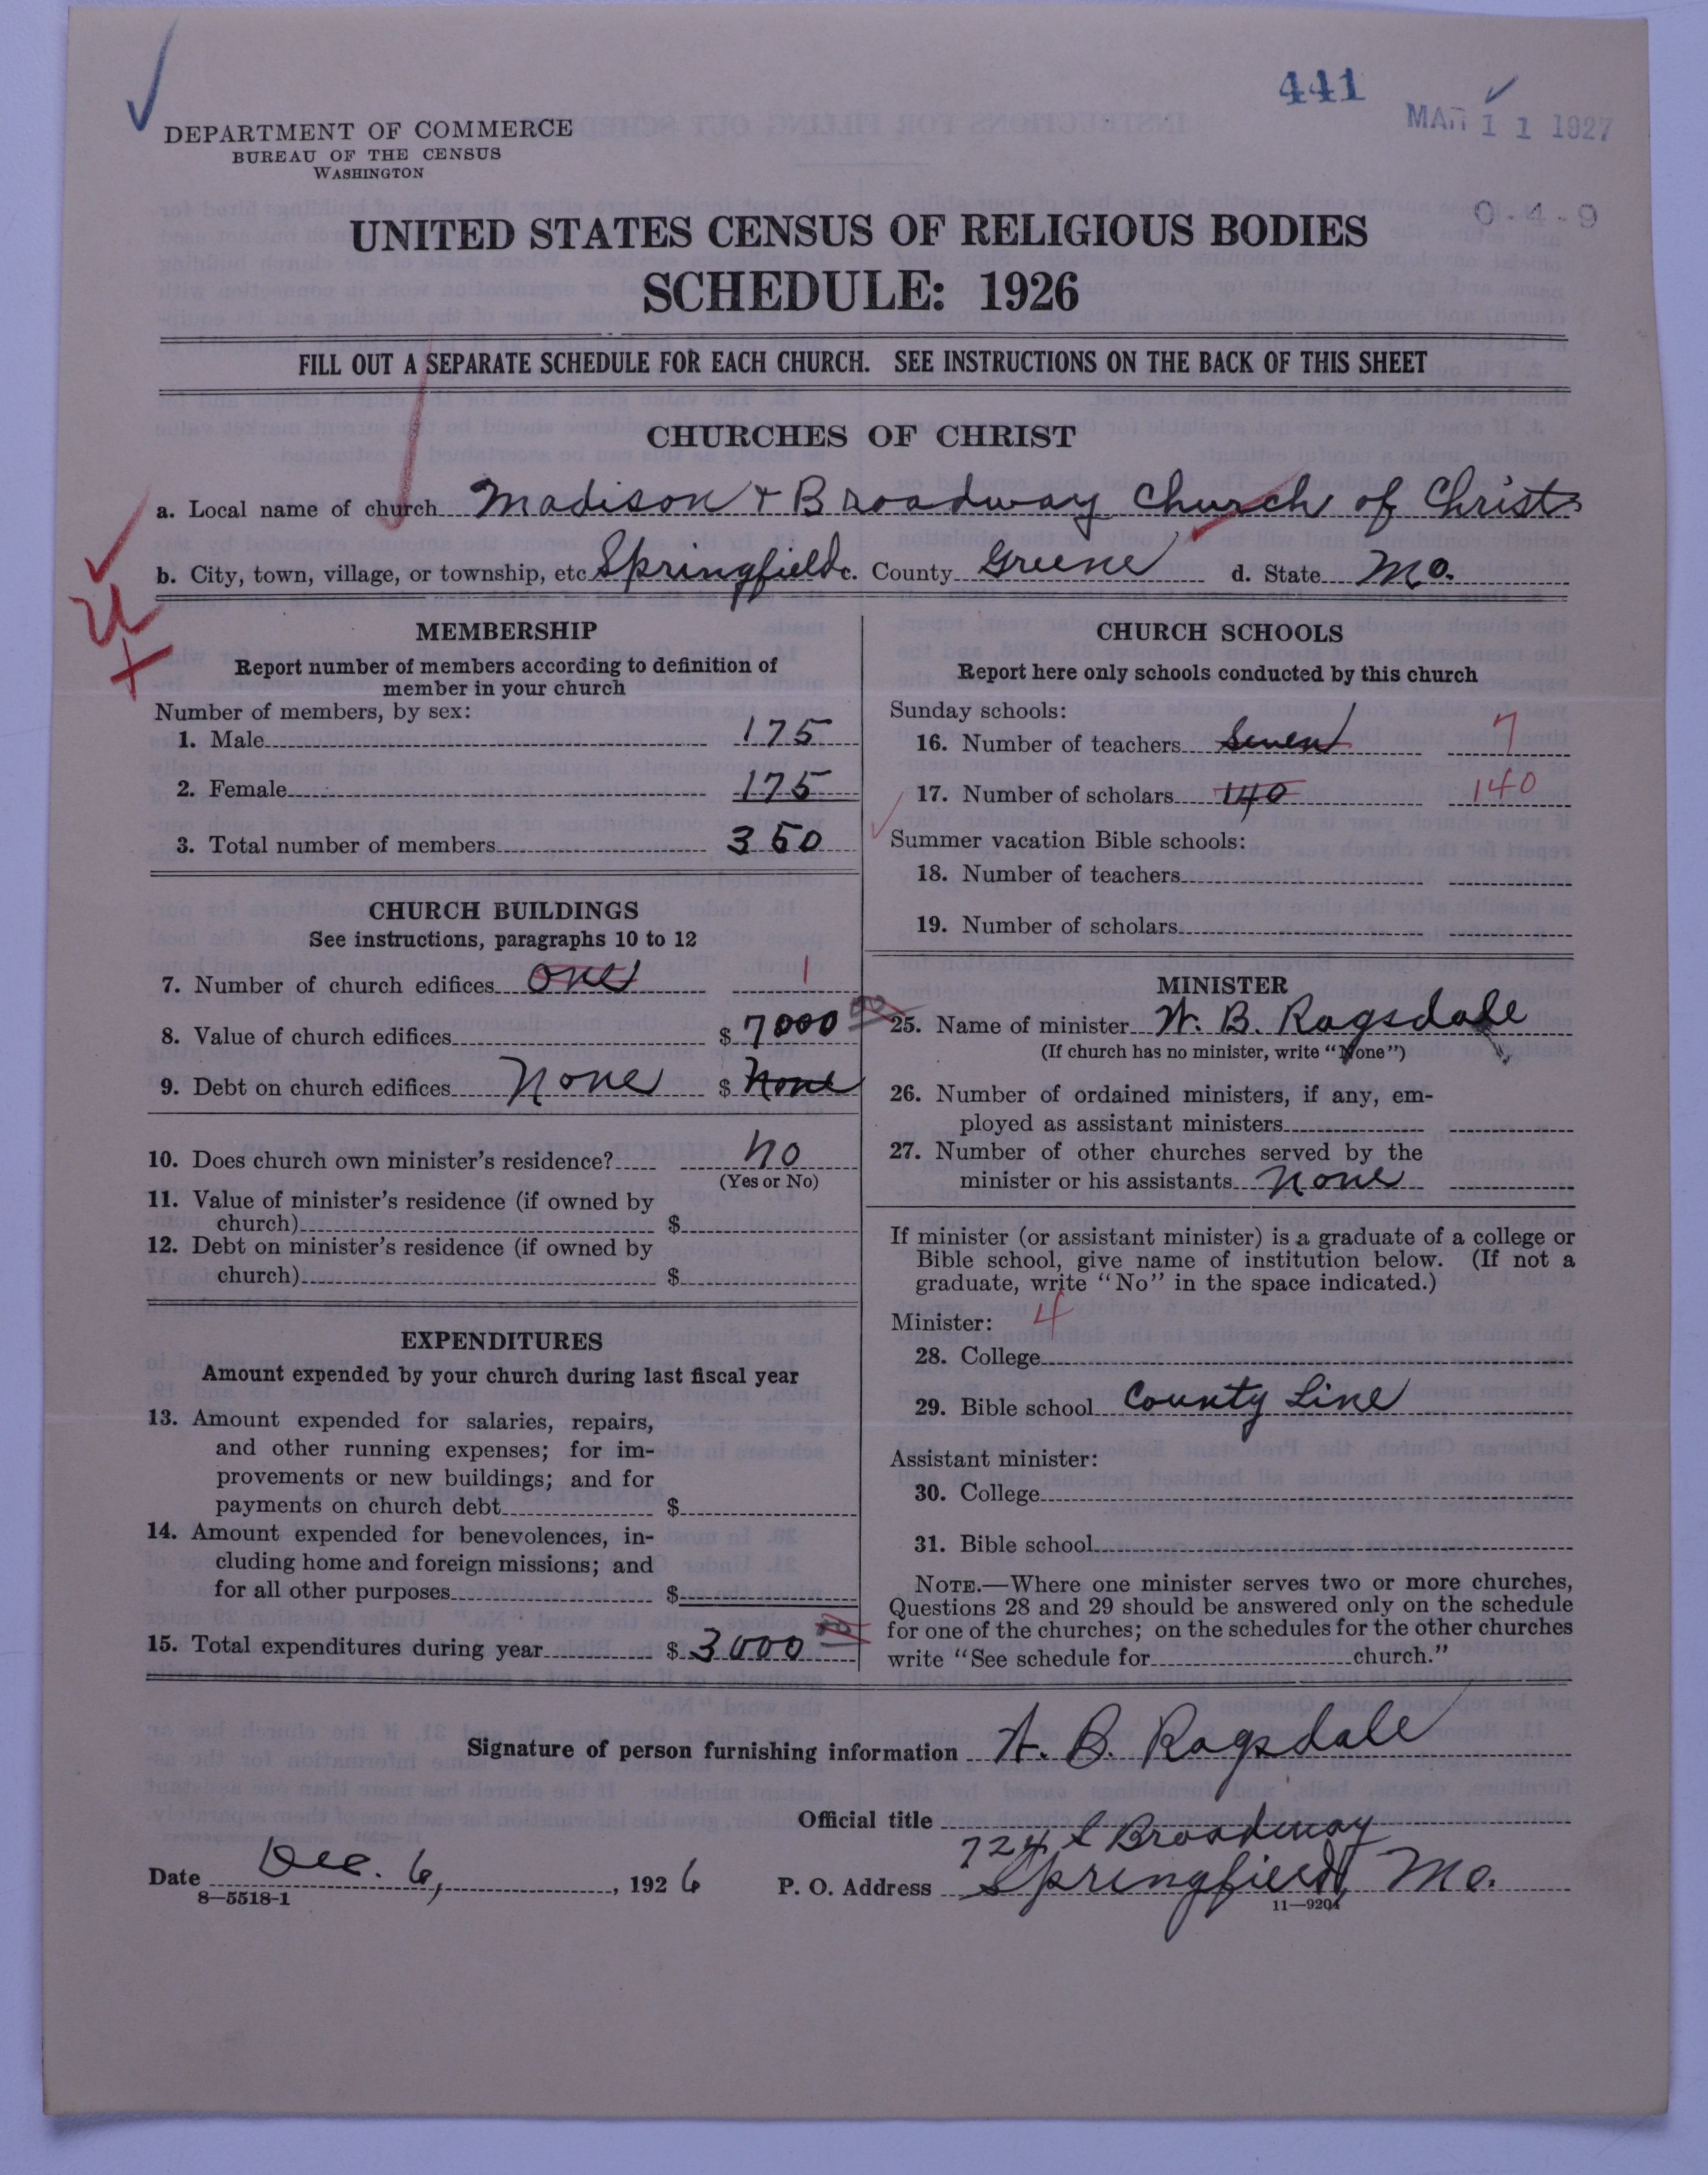 441
MAR 11 1927
DEPARTMENT OF COMMERCE
BUREAU OF THE CENSUS
WASHINGTON
0-4-9
UNITED STATES CENSUS OF RELIGIOUS BODIES
SCHEDULE: 1926
FILL OUT A SEPARATE SCHEDULE FOR EACH CHURCH. SEE INSTRUCTIONS ON THE BACK OF THIS SHEET
CHURCHES OF CHRIST
a. Local name of church Madison + Broadway Church of Christ
b. City, town, village, or township, etc Springfield c. County Greene d. State Mo.
U
+
MEMBERSHIP
Report number of members according to definition of
member in your church
Number of members, by sex:
1. Male 175
2. Female 175
3. Total number of members 350
CHURCH BUILDINGS
See instructions, paragraphs 10 to 12
7. Number of church edifices one 1
8. Value of church edifices $ 7000 00
9. Debt on church edifices None $ None
10. Does church own minister's residence? No
(Yes or No)
11. Value of minister's residence (if owned by
church) $
12. Debt on minister's residence (if owned by
church) $
EXPENDITURES
Amount expended by your church during last fiscal year
13. Amount expended for salaries, repairs,
and other running expenses; for im-
provements or new buildings; and for
payments on church debt $
14. Amount expended for benevolences, in-
cluding home and foreign missions; and
for all other purposes $
15. Total expenditures during year $ 3000 00
CHURCH SCHOOLS
Report here only schools conducted by this church
Sunday schools:
16. Number of teachers Seven 7
17. Number of scholars 140 140
Summer vacation Bible schools:
18. Number of teachers
19. Number of scholars
MINISTER
25. Name of minister W. B. Ragsdale
(If church has no minister, write "None")
26. Number of ordained ministers, if any, em-
ployed as assistant ministers
27. Number of other churches served by the
minister or his assistants None
If minister (or assistant minister) is a graduate of a college or
Bible school, give name of institution below. (If not a
graduate, write "No" in the space indicated.)
Minister: 4
28. College
29. Bible school County Line
Assistant minister:
30. College
31. Bible school
NOTE.—Where one minister serves two or more churches,
Questions 28 and 29 should be answered only on the schedule
for one of the churches; on the schedules for the other churches
write "See schedule for church."
Signature of person furnishing information W. B. Ragsdale
Official title
724 S Broadway
Date Dec. 6, 1926 P. O. Address Springfield, Mo.
8—5518-1
11—9204